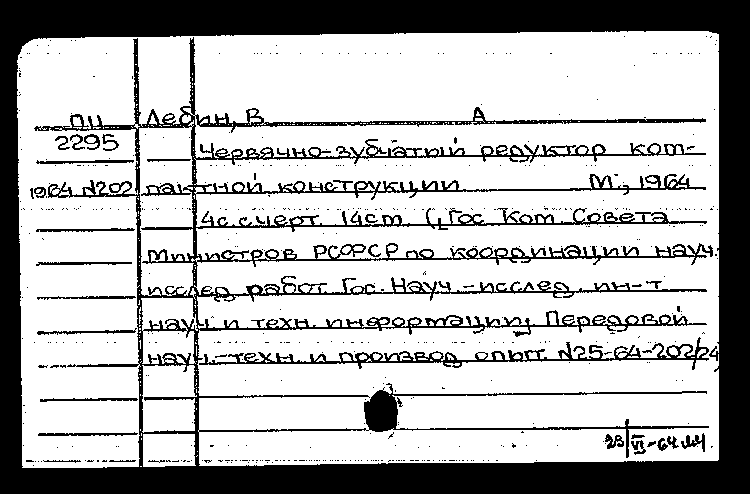 ПЦ Лебин, В. А
2295
Червячно-зубчатый редуктор ком-
1964 N202 пактной конструкции М., 1964
4с. с черт. 14см. (Гос Ком Совета
Министров РСФСР по координации науч.
исслед. работ. Гос. Науч.-исслед. ин-т
науч. и техн. информации; Передовой
науч.-техн. и производ. опыт. N25-64-202/24)
23/VI-64